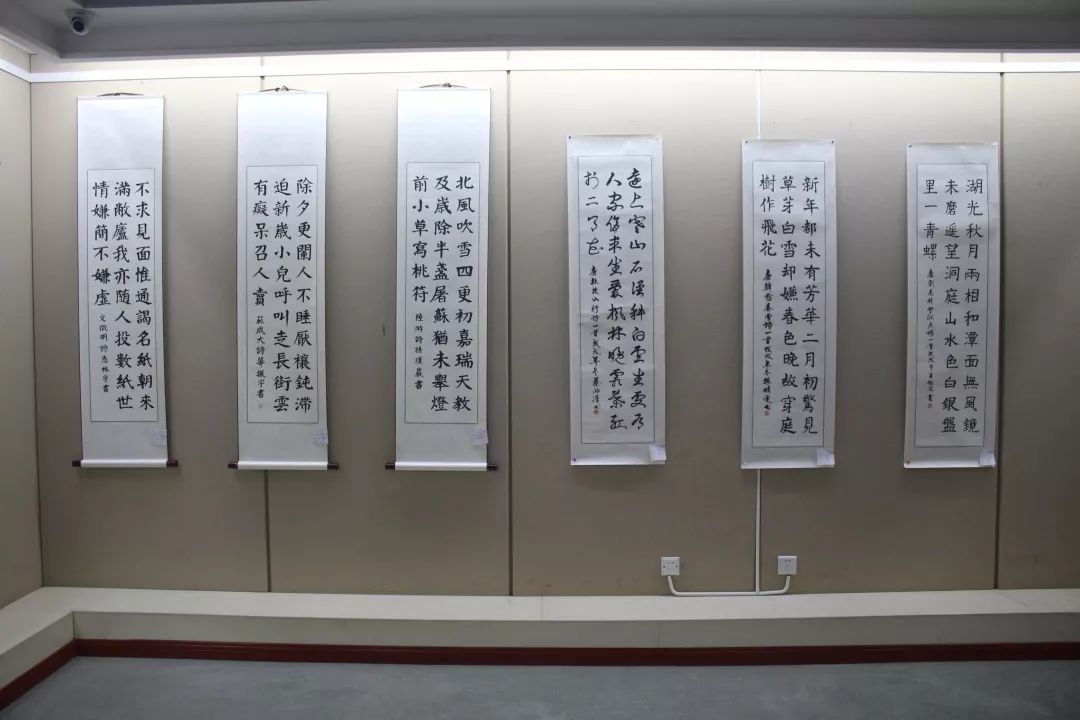 不求見面惟通謁名紙朝來
滿敝廬我亦隨人投數紙世
情嫌簡不嫌虛 文徵明詩 林字書
除夕更闌人不睡厭禳鈍滯
迫新歲小兒呼叫走長街雲
有癡呆召人賣 范成大詩 華振宇書
北風吹雪四更初嘉瑞天教
及歲除半盞屠蘇猶未舉燈
前小草寫桃符 陸游詩 書
遠上寒山石徑斜白雲生處有
人家停車坐愛楓林晚霜葉紅
於二月花 唐杜牧山行詩一首戊戌年冬
新年都未有芳華二月初驚見
草芽白雪却嫌春色晚故穿庭
樹作飛花 唐韓愈春雪詩一首戊戌年冬
湖光秋月兩相和潭面無風鏡
未磨遥望洞庭山水色白銀盤
里一青螺 唐劉禹錫望洞庭詩一首戊戌 書